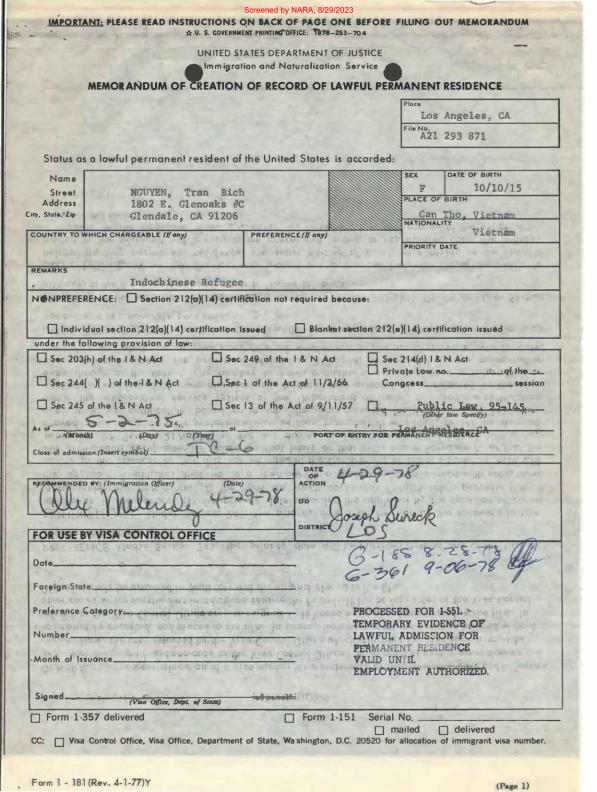 Screened by NARA, 8/29/2023
IMPORTANT: PLEASE READ INSTRUCTIONS ON BACK OF PAGE ONE BEFORE FILLING OUT MEMORANDUM
☆ U. S. GOVERNMENT PRINTING OFFICE: 1978-253-704
UNITED STATES DEPARTMENT OF JUSTICE
Immigration and Naturalization Service
MEMORANDUM OF CREATION OF RECORD OF LAWFUL PERMANENT RESIDENCE
Place
Los Angeles, CA
File No.
A21 293 871
Status as a lawful permanent resident of the United States is accorded:
Name
Street
Address
City, State, Zip
NGUYEN, Tran Bich
1802 E. Glenoaks #C
Glendale, CA 91206
SEX
F
DATE OF BIRTH
10/10/15
PLACE OF BIRTH
Can Tho, Vietnam
NATIONALITY
Vietnam
COUNTRY TO WHICH CHARGEABLE (If any)
PREFERENCE (If any)
PRIORITY DATE
REMARKS
Indochinese Refugee
NONPREFERENCE: ☐ Section 212(a)(14) certification not required because:
☐ Individual section 212(a)(14) certification issued ☐ Blanket section 212(a)(14) certification issued
under the following provision of law:
☐ Sec 203(h) of the I & N Act ☐ Sec 249 of the I & N Act ☐ Sec 214(d) I & N Act
☐ Private Law no. of the
☐ Sec 244( )( ) of the I & N Act ☐ Sec 1 of the Act of 11/2/66 Congress, session
☐ Sec 245 of the I & N Act ☐ Sec 13 of the Act of 9/11/57 ☐ Public Law 95-145
(Other law Specify)
As of 5-2-75 at Los Angeles, CA
(Month) (Day) (Year) PORT OF ENTRY FOR PERMANENT RESIDENCE
Class of admission (Insert symbol) IC-6
RECOMMENDED BY: (Immigration Officer) (Date)
4-29-78
DATE OF ACTION 4-29-78
DD
DISTRICT
Joseph Sureck
LOS
FOR USE BY VISA CONTROL OFFICE
G-188 8-28-78
G-361 9-06-78
Date
Foreign State
Preference Category
Number
Month of Issuance
PROCESSED FOR I-551.
TEMPORARY EVIDENCE OF
LAWFUL ADMISSION FOR
PERMANENT RESIDENCE
VALID UNTIL
EMPLOYMENT AUTHORIZED.
Signed
(Visa Office, Dept. of State)
☐ Form 1-357 delivered ☐ Form 1-151 Serial No.
☐ mailed ☐ delivered
CC: ☐ Visa Control Office, Visa Office, Department of State, Washington, D.C. 20520 for allocation of immigrant visa number.
Form I - 181 (Rev. 4-1-77)Y
(Page 1)